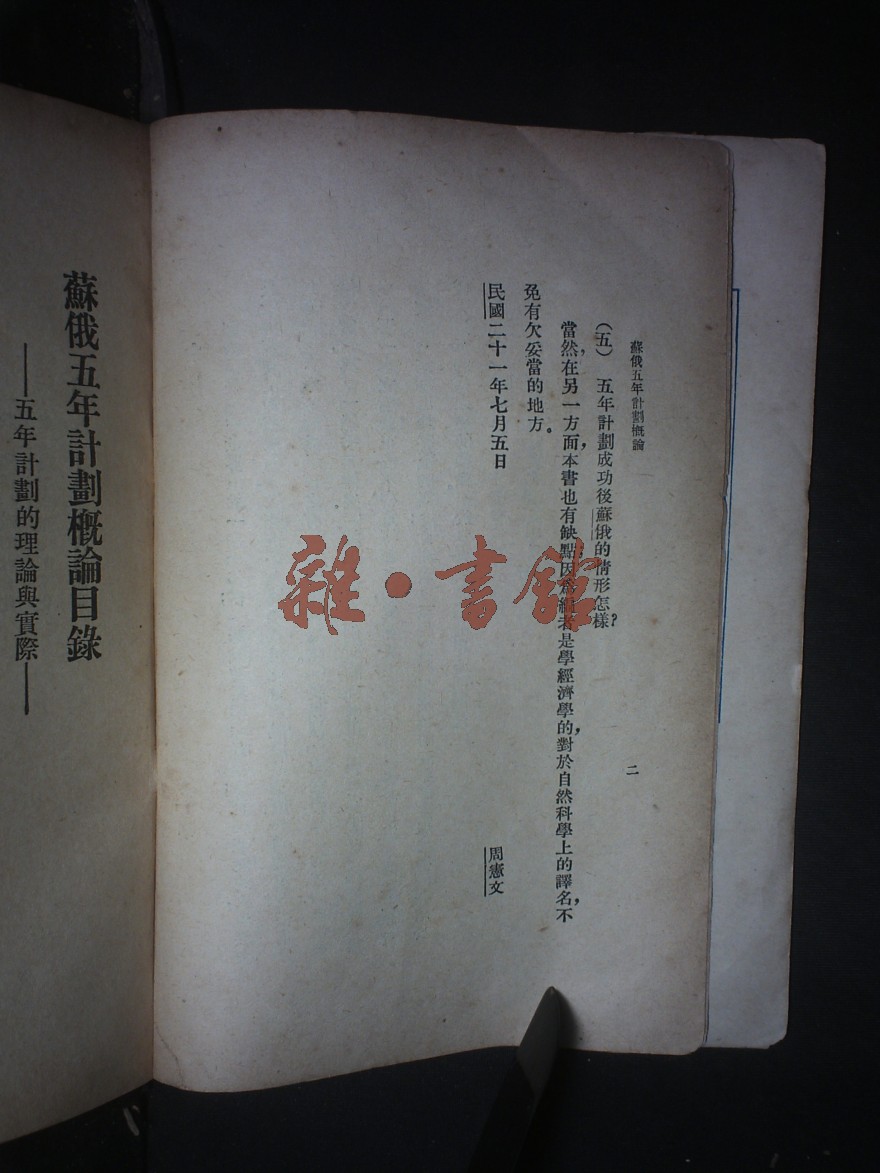 蘇俄五年計劃概論
二
(五) 五年計劃成功後蘇俄的情形怎樣?
當然,在另一方面,本書也有缺點,因爲編者是學經濟學的,對於自然科學上的譯名,不
免有欠妥當的地方。
民國二十一年七月五日
周憲文
蘇俄五年計劃概論目錄
——五年計劃的理論與實際——
雜·書館